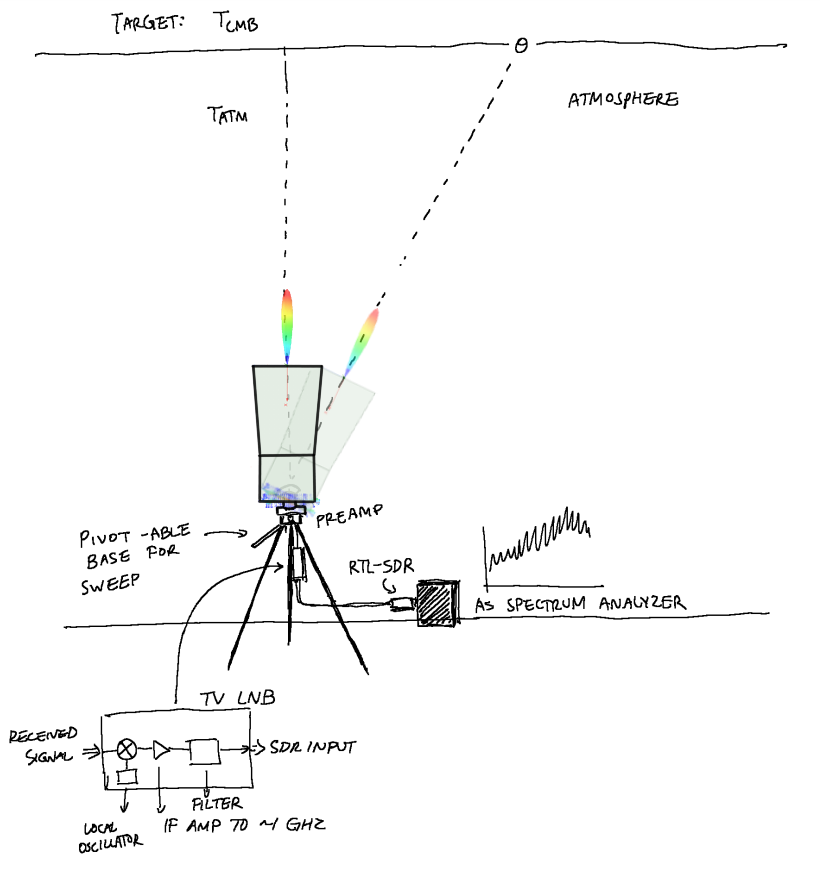 TARGET: TCMB
θ
TATM
ATMOSPHERE
PREAMP
PIVOT-ABLE
BASE FOR
SWEEP
RTL-SDR
AS SPECTRUM ANALYZER
TV LNB
RECEIVED
SIGNAL
SDR INPUT
FILTER
LOCAL
OSCILLATOR
IF AMP TO ~1 GHZ